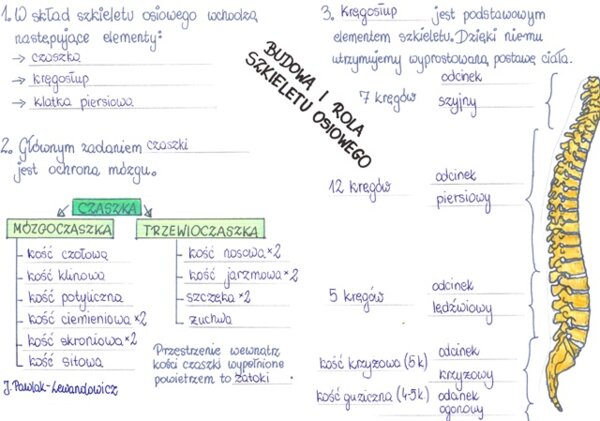 BUDOWA I ROLA
SZKIELETU OSIOWEGO
1. W skład szkieletu osiowego wchodzą
następujące elementy:
→ czaszka
→ kręgosłup
→ klatka piersiowa
2. Głównym zadaniem czaszki
jest ochrona mózgu.
CZASZKA
MÓZGOCZASZKA
- kość czołowa
- kość klinowa
- kość potyliczna
- kość ciemieniowa ×2
- kość skroniowa ×2
- kość sitowa
TRZEWIOCZASZKA
- kość nosowa ×2
- kość jarzmowa ×2
- szczęka ×2
- żuchwa
Przestrzenie wewnątrz
kości czaszki wypełnione
powietrzem to zatoki.
J. Pawlak-Lewandowicz
3. Kręgosłup jest podstawowym
elementem szkieletu. Dzięki niemu
utrzymujemy wyprostowaną postawę ciała.
7 kręgów
odcinek
szyjny
12 kręgów
odcinek
piersiowy
5 kręgów
odcinek
lędźwiowy
kość krzyżowa (5k)
odcinek
krzyżowy
kość guziczna (4-5k)
odcinek
ogonowy